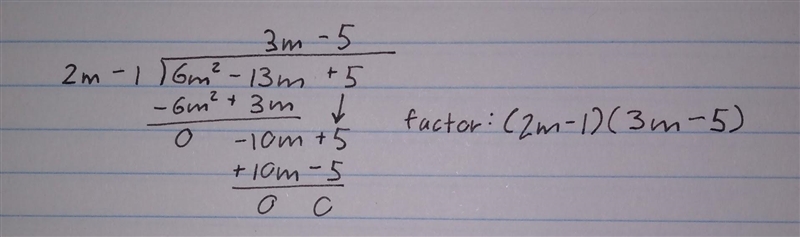 3m - 5
2m - 1 ) 6m² - 13m + 5
-6m² + 3m ↓
0 -10m + 5
+10m - 5
0 0
factor: (2m-1)(3m-5)